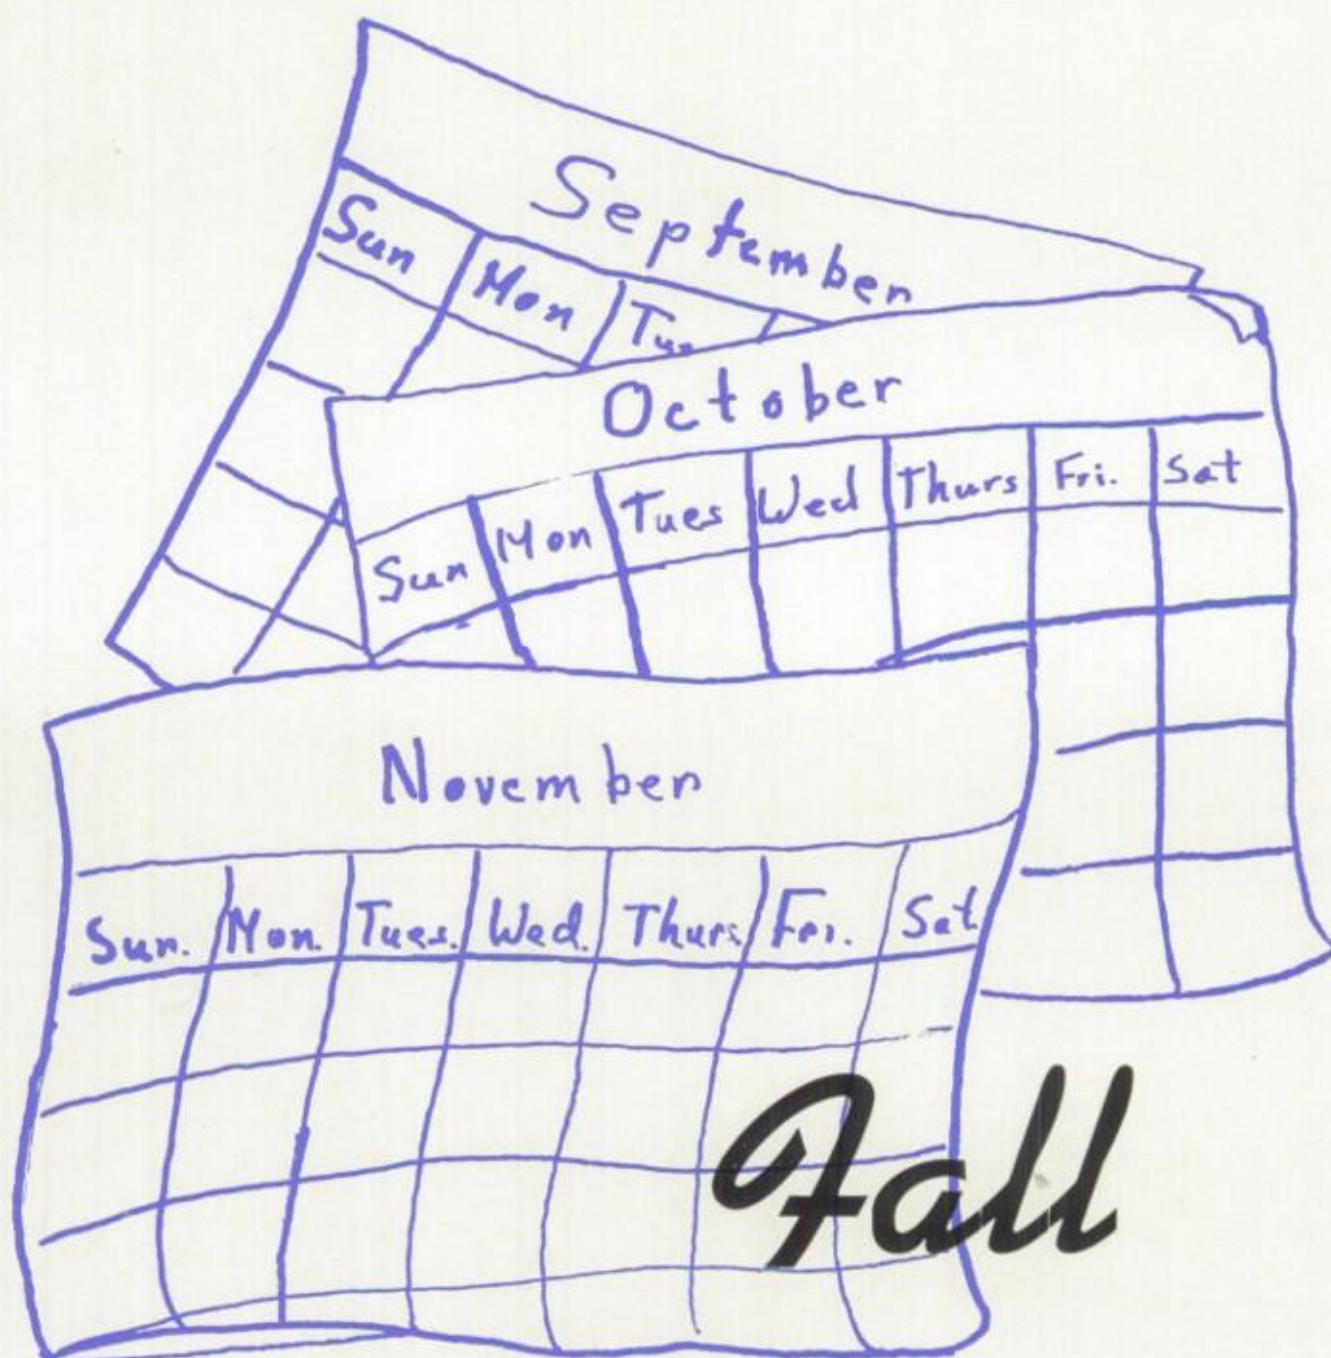 September
Sun Mon Tue
October
Sun Mon Tues Wed Thurs Fri. Sat
November
Sun. Mon. Tues. Wed. Thurs. Fri. Sat.
Fall